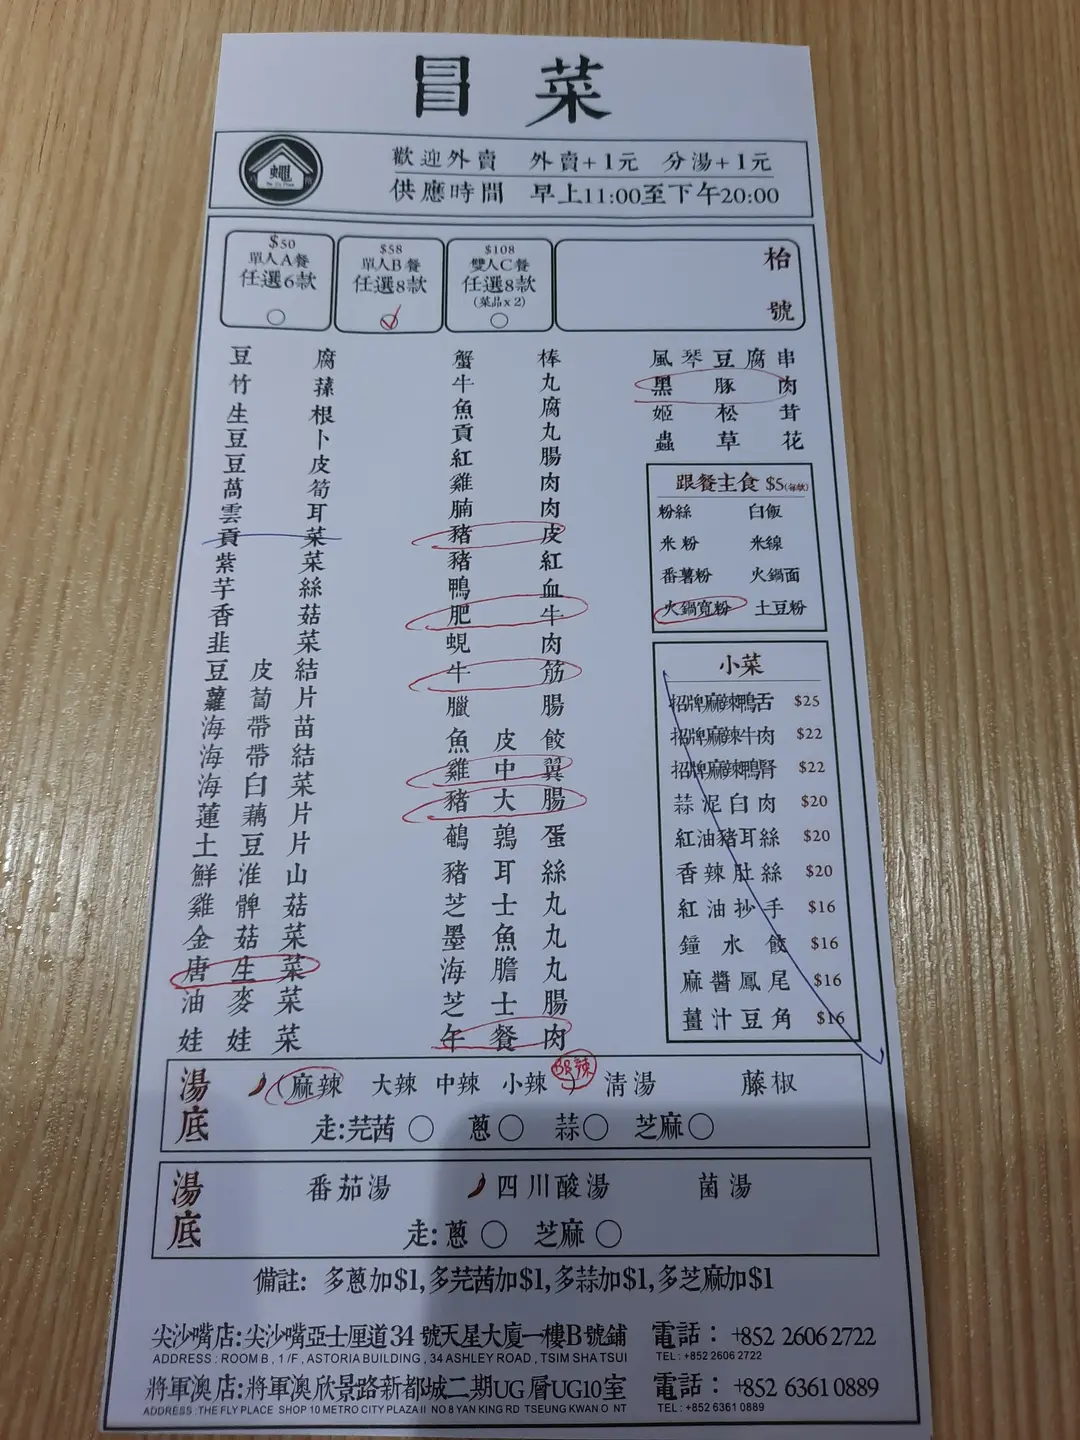 冒菜
歡迎外賣 外賣+1元 分湯+1元
供應時間 早上11:00至下午20:00
蠅
$50
單人A餐
任選6款
$58
單人B餐
任選8款
$108
雙人C餐
任選8款
(菜品x2)
枱
號
豆腐
竹蓀
生根
豆卜
豆皮
萵筍
雲耳
貢菜
紫菜
芋絲
香菇
韭菜
豆皮結
蘿蔔片
海帶苗
海帶結
海白菜
蓮藕片
土豆片
鮮淮山
雞髀菇
金菇菜
唐生菜
油麥菜
娃娃菜
蟹棒
牛丸
魚腐
貢丸
紅腸
雞肉
腩肉
豬皮
豬紅
鴨血
肥牛
蜆肉
牛筋
臘腸
魚皮餃
雞中翼
豬大腸
鵪鶉蛋
豬耳絲
芝士丸
墨魚丸
海膽丸
芝士腸
午餐肉
風琴豆腐串
黑豚肉
姬松茸
蟲草花
跟餐主食 $5
粉絲 白飯
米粉 米線
番薯粉 火鍋面
火鍋寬粉 土豆粉
小菜
招牌麻辣鴨舌 $25
招牌麻辣牛肉 $22
招牌麻辣鴨腎 $22
蒜泥白肉 $20
紅油豬耳絲 $20
香辣肚絲 $20
紅油抄手 $16
鐘水餃 $16
麻醬鳳尾 $16
薑汁豆角 $16
湯底 麻辣 大辣 中辣 小辣 清湯 藤椒
走:芫茜 蔥 蒜 芝麻
湯底 番茄湯 四川酸湯 菌湯
走:蔥 芝麻
備註: 多蔥加$1,多芫茜加$1,多蒜加$1,多芝麻加$1
尖沙嘴店:尖沙嘴亞士厘道34 號天星大廈一樓B號鋪 電話: +852 2606 2722
ADDRESS : ROOM B , 1 /F , ASTORIA BUILDING , 34 ASHLEY ROAD , TSIM SHA TSUI TEL : +852 2606 2722
將軍澳店:將軍澳欣景路新都城二期UG層UG10室 電話: +852 6361 0889
ADDRESS :THE FLY PLACE SHOP 10 METRO CITY PLAZA II NO 8 YAN KING RD TSEUNG KWAN O NT TEL : +852 6361 0889